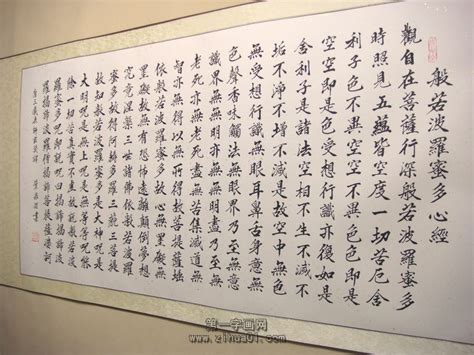 般若波羅蜜多心經
觀自在菩薩行深般若波羅蜜多
時照見五蘊皆空度一切苦厄舍
利子色不異空空不異色色即是
空空即是色受想行識亦復如是
舍利子是諸法空相不生不滅不
垢不淨不增不減是故空中無色
無受想行識無眼耳鼻舌身意無
色聲香味觸法無眼界乃至無意
識界無無明亦無無明盡乃至無
老死亦無老死盡無苦集滅道無
智亦無得以無所得故菩提薩埵
依般若波羅蜜多故心無罣礙無
罣礙故無有恐怖遠離顛倒夢想
究竟涅槃三世諸佛依般若波羅
蜜多故得阿耨多羅三藐三菩提
故知般若波羅蜜多是大神咒是
大明咒是無上咒是無等等咒能
除一切苦真實不虛故說般若波
羅蜜多咒即說咒曰揭諦揭諦波
羅揭諦波羅僧揭諦菩提薩婆訶
唐三藏法師玄奘譯
第一字画网
www.zihua01.com